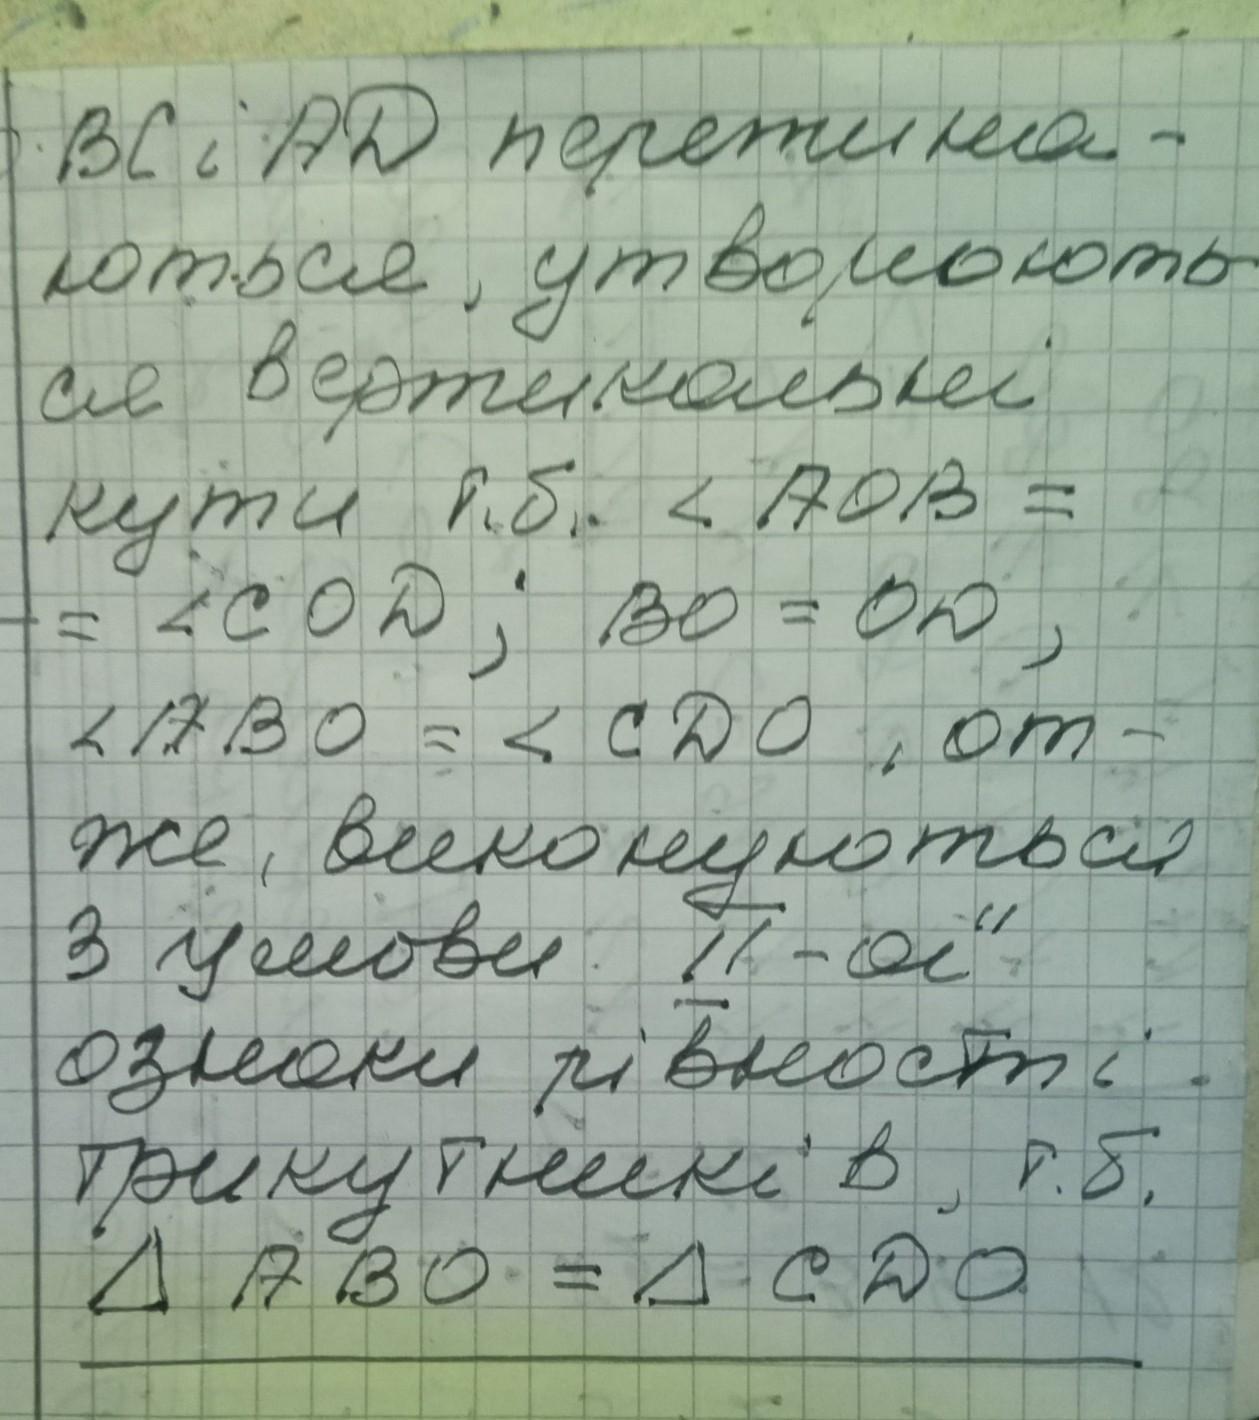 BC і AD перетина-
ються, утворюють
ся вертикальні
кути т.б. < AOB =
= < COD ; BO = OD ,
< ABO = < CDO , от-
же, виконуються
3 умови II-ої
ознаки рівності
трикутників, т.б.
Δ ABO = Δ CDO